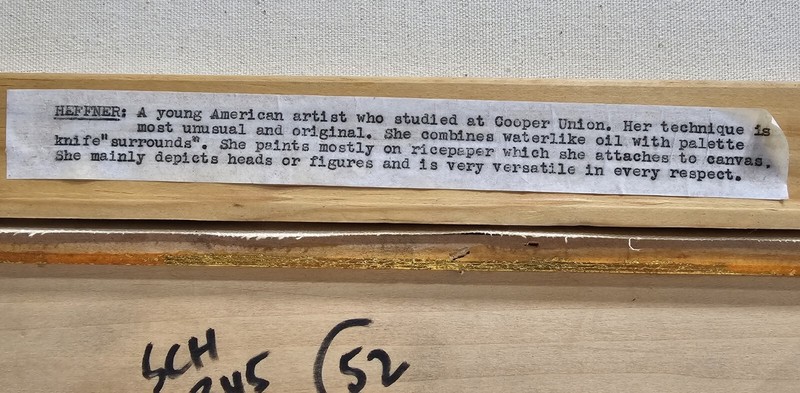 HEFFNER: A young American artist who studied at Cooper Union. Her technique is
most unusual and original. She combines waterlike oil with palette
knife"surrounds". She paints mostly on ricepaper which she attaches to canvas.
She mainly depicts heads or figures and is very versatile in every respect.
SCH
(52